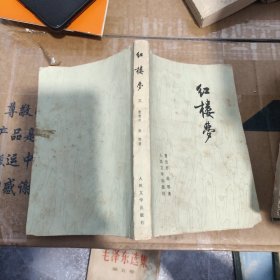 红楼梦
曹雪芹 高鹗著
人民文学出版社
红楼梦
三
人民文学出版社
尊敬
产品是
搬运中
感谢
毛泽东选集